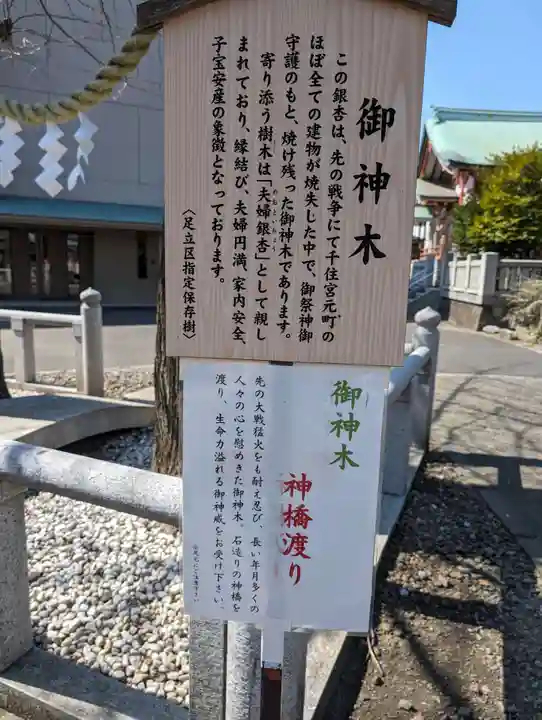 御神木
この銀杏は、先の戦争にて千住宮元町の
ほぼ全ての建物が焼失した中で、御祭神御
守護のもと、焼け残った御神木であります。
寄り添う樹木は「夫婦銀杏」として親し
めおといちょう
まれており、縁結び、夫婦円満、家内安全、
子宝安産の象徴となっております。
〈足立区指定保存樹〉
御神木
神橋渡り
先の大戦猛火をも耐え忍び、長い年月多くの
人々の心を慰めきた御神木。石造りの神橋を
渡り、生命力溢れる御神威をお受け下さい。